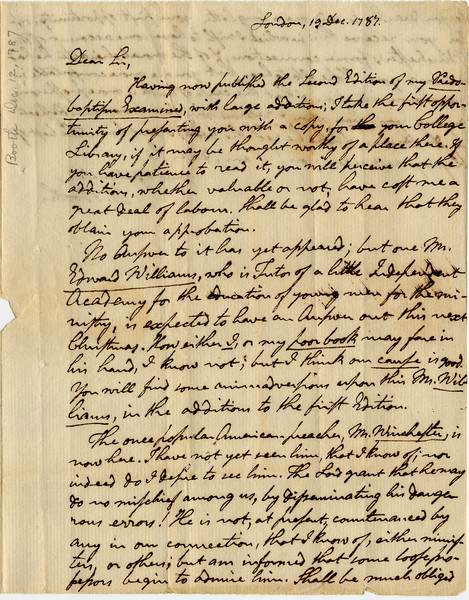 London, 19 Dec. 1787.
Dear Sir,
Having now published the Second Edition of my Paedo-
baptism Examined, with large additions; I take the first oppor-
tunity of presenting you with a copy, for your College
Library, if it may be thought worthy of a place there. If
you have patience to read it, you will perceive that the
additions, whether valuable or not, have cost me a
great deal of labour. Shall be glad to hear that they
obtain your approbation.
No Answer to it has yet appeared; but one Mr.
Edward Williams, who is Tutor of a little Independent
Academy for the education of young men for the mi-
nistry, is expected to have an Answer out this next
Christmas. How either I, or my poor book may fare in
his hand, I know not; but I think our cause is good.
You will find some animadversions upon this Mr. Wil-
liams, in the additions to the first Edition.
The once popular American preacher, Mr. Winchester, is
now here. I have not yet seen him, that I know of; nor
indeed do I desire to see him. The Lord grant that he may
do no mischief among us, by disseminating his dange-
rous errors! He is not, at present, countenanced by
any in our connection, that I know of, either minis-
ters, or others; but am informed that some loose pro-
fessors begin to admire him. Shall be much obliged
Booth Dec. 12, 1787